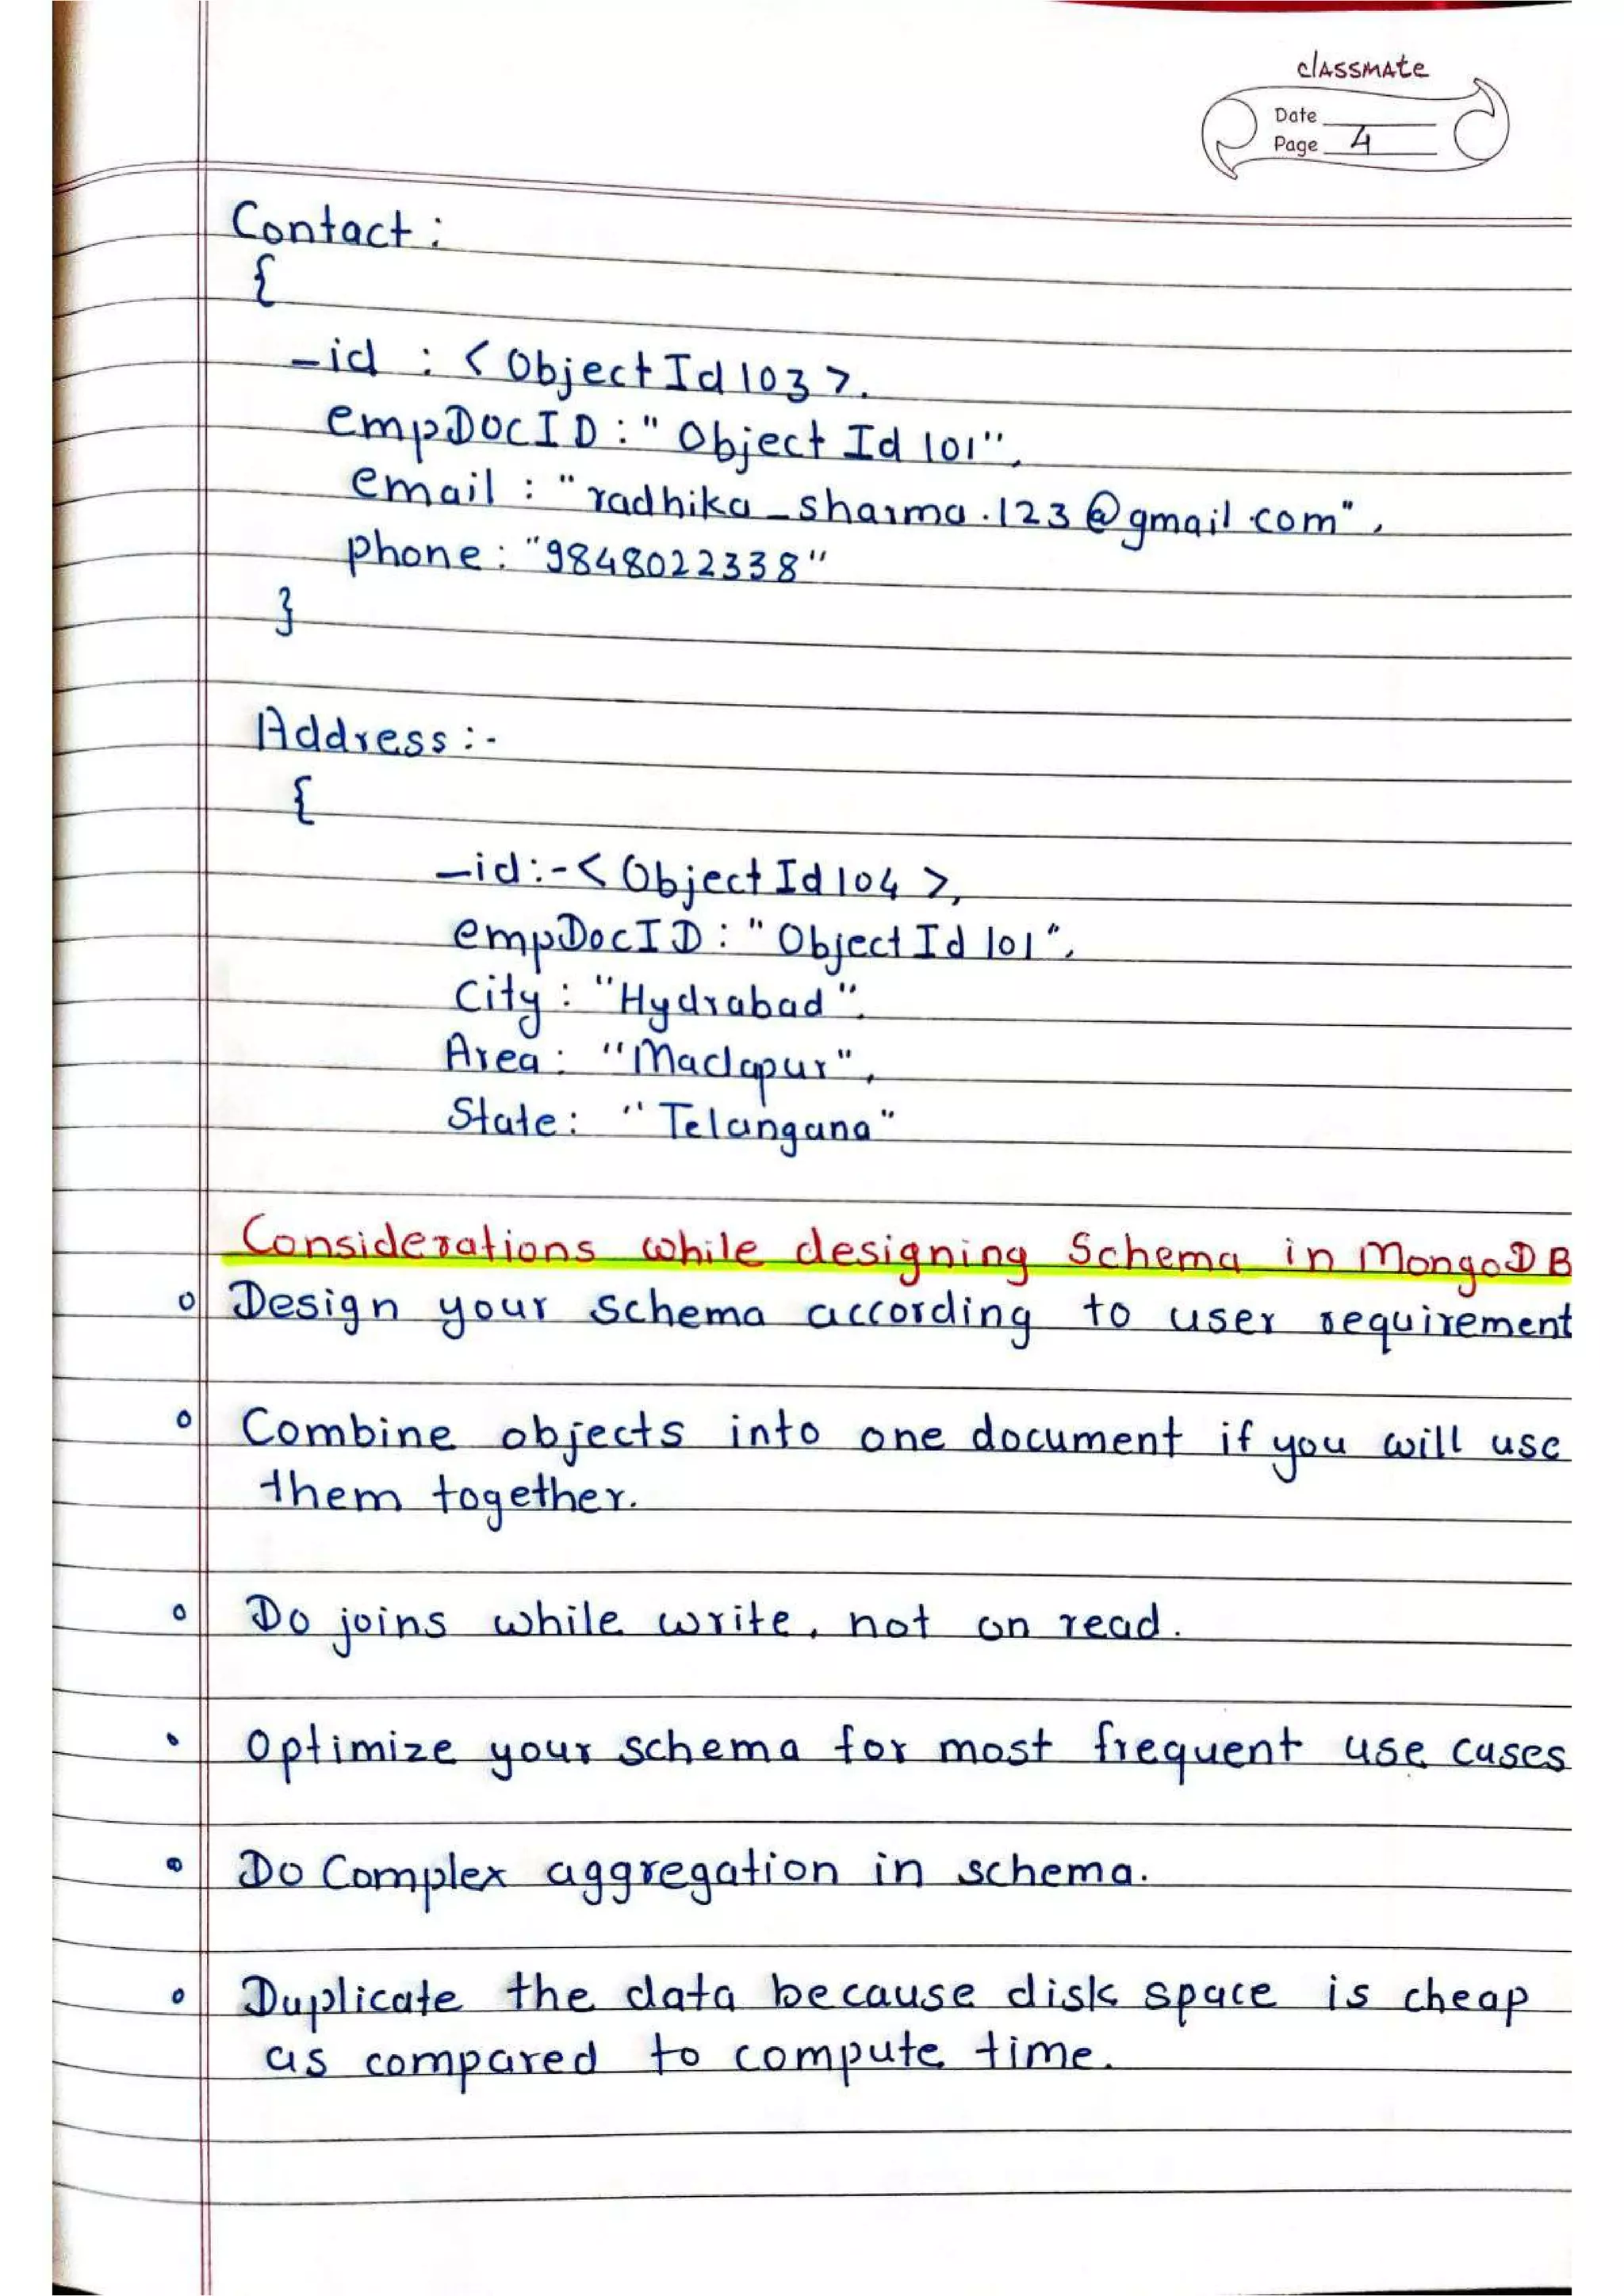 classmate
Date
Page 4
Contact :
{
_id : < Object Id 103 >.
empDOCID : " Object Id 101",
email : "radhika_sharma.123@gmail.com",
phone : "9848022338"
}
Address :-
{
_id:-< Object Id 104 >,
empDocID : "Object Id 101",
City : "Hydrabad",
Area : "Madapur",
State : "Telangana"
Considerations while designing Schema in MongoDB
o Design your schema according to user requirement
o Combine objects into one document if you will use
them together.
o Do joins while write, not on read.
• Optimize your schema for most frequent use cases
o Do Complex aggregation in schema.
o Duplicate the data because disk space is cheap
as compared to compute time.